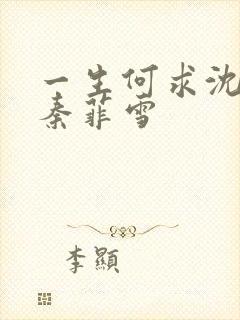 一生何求沈
秦菲雪
李顯